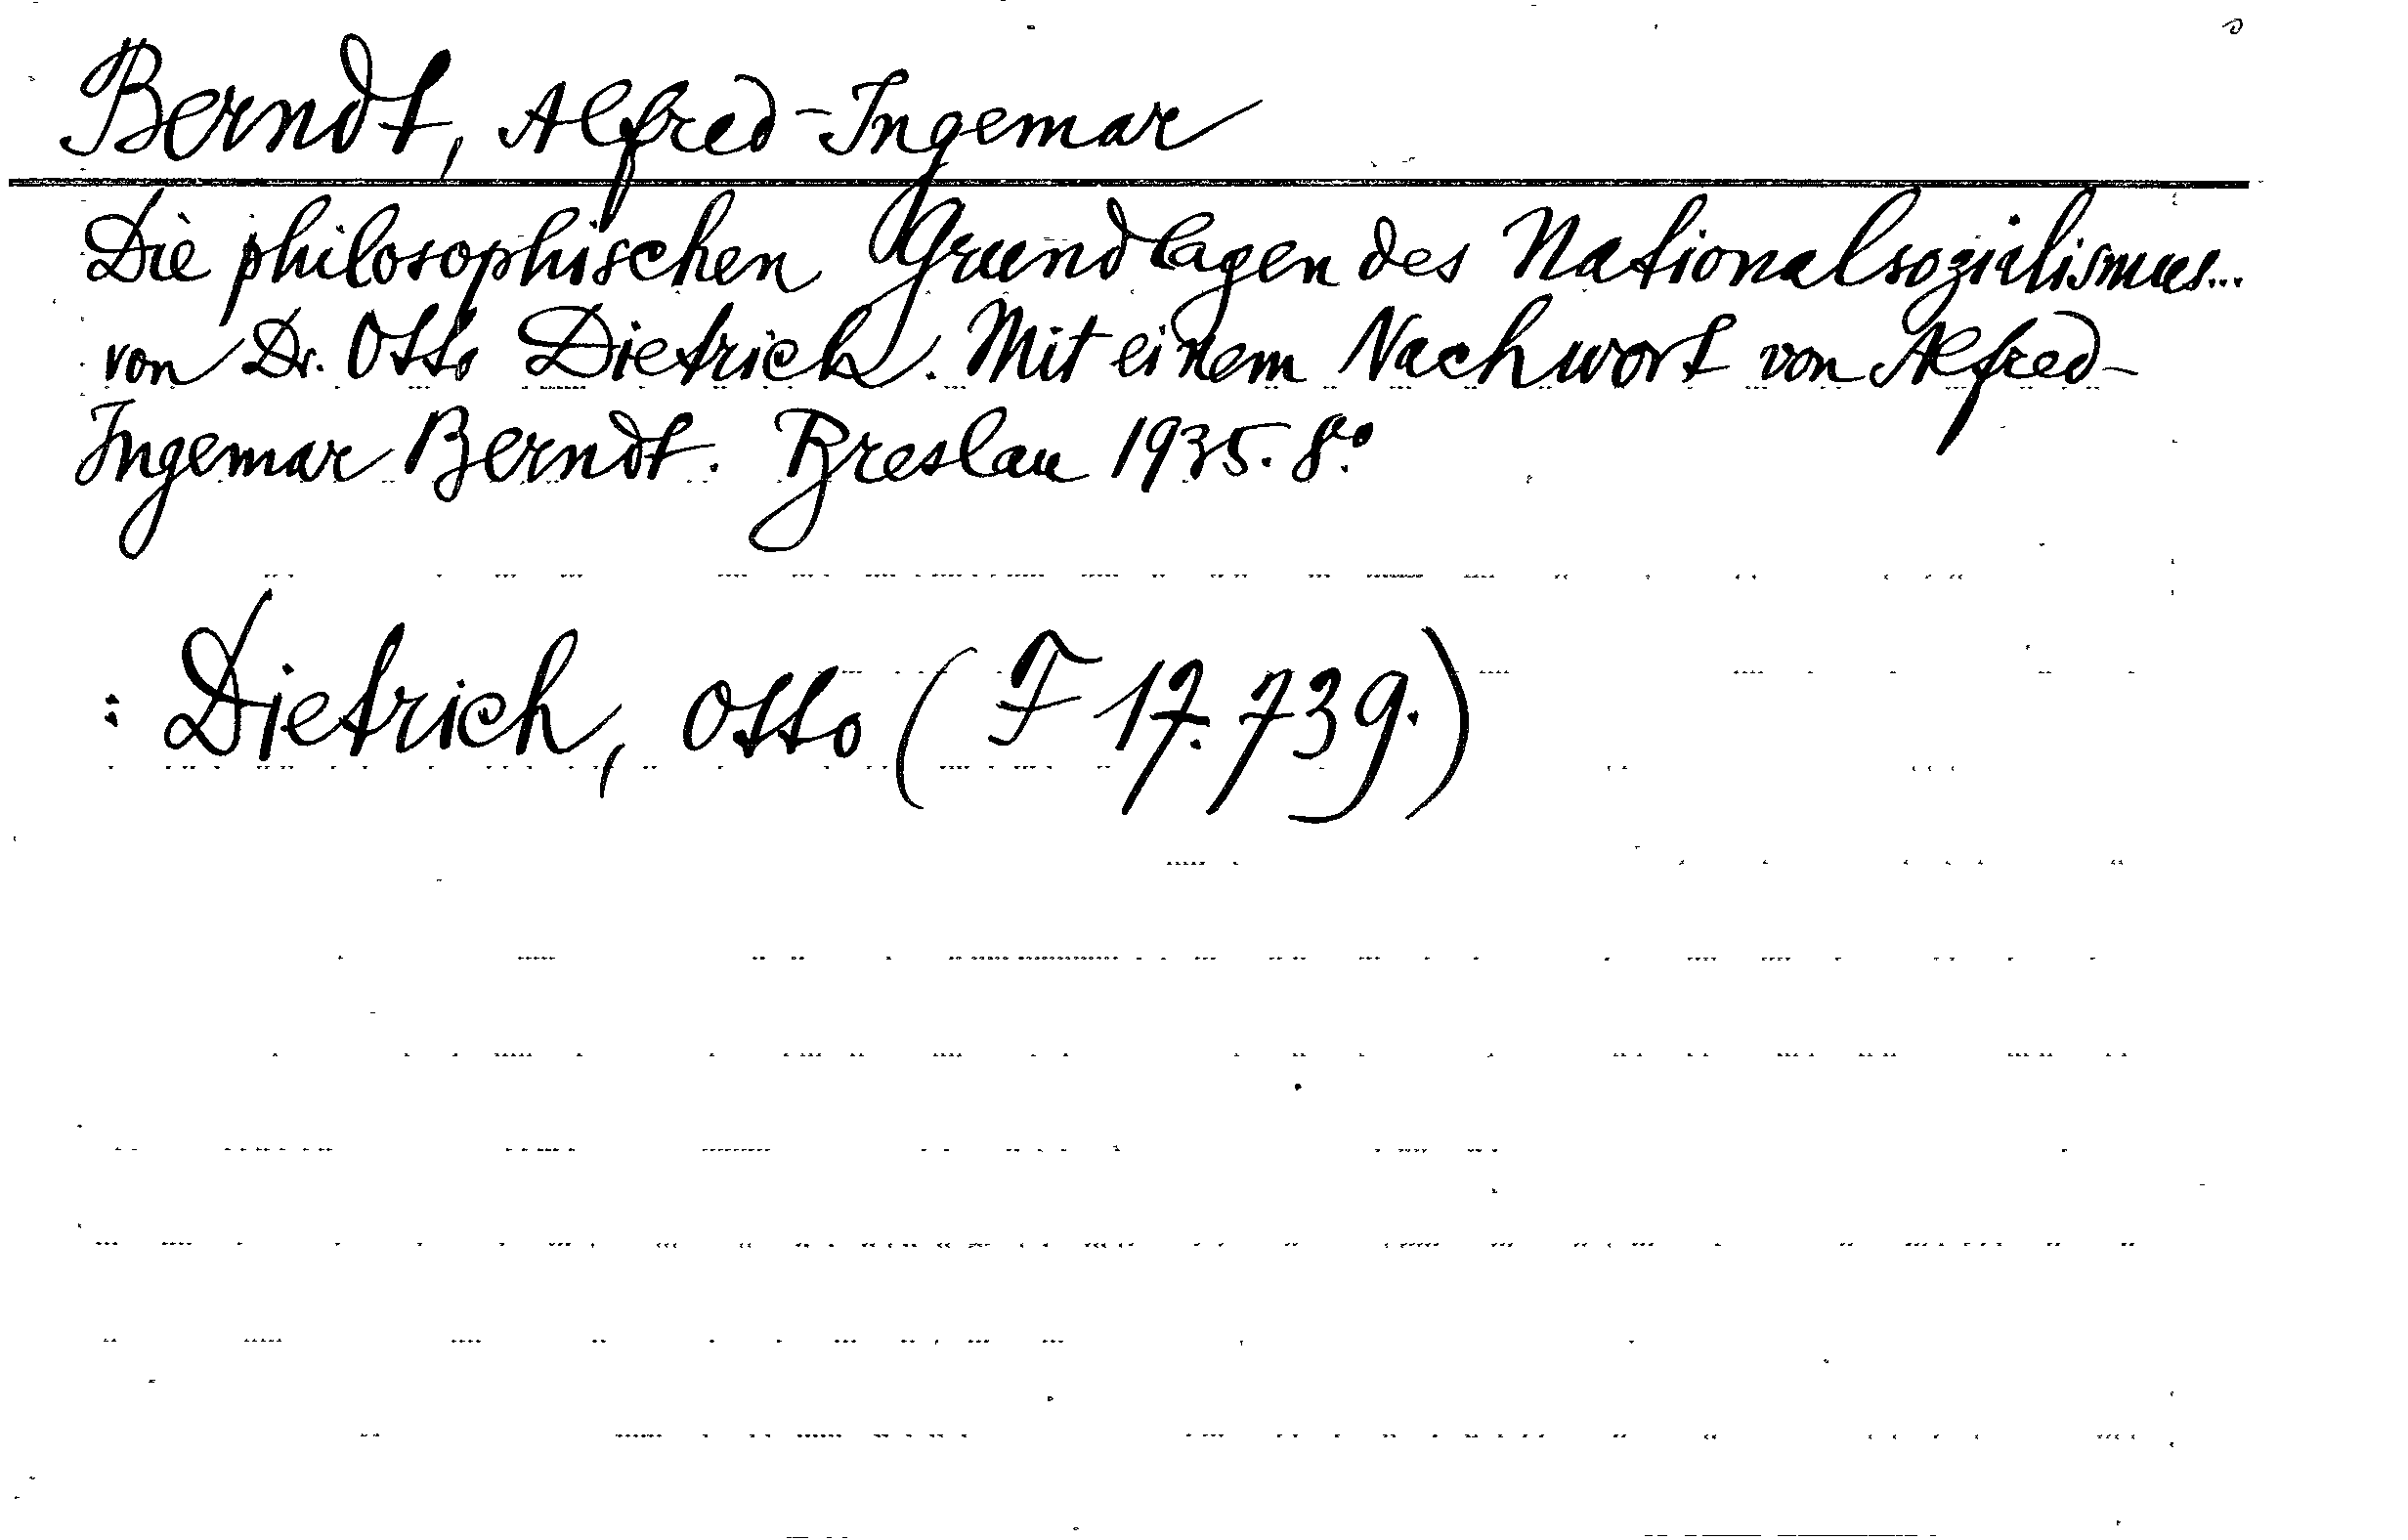 Berndt, Alfred-Ingemar
Die philosophischen Grundlagen des Nationalsozialismus...
von Dr. Otto Dietrich. Mit einem Nachwort von Alfred-
Ingemar Berndt. Breslau 1935. 8.°
: Dietrich, Otto (F 17.739.)